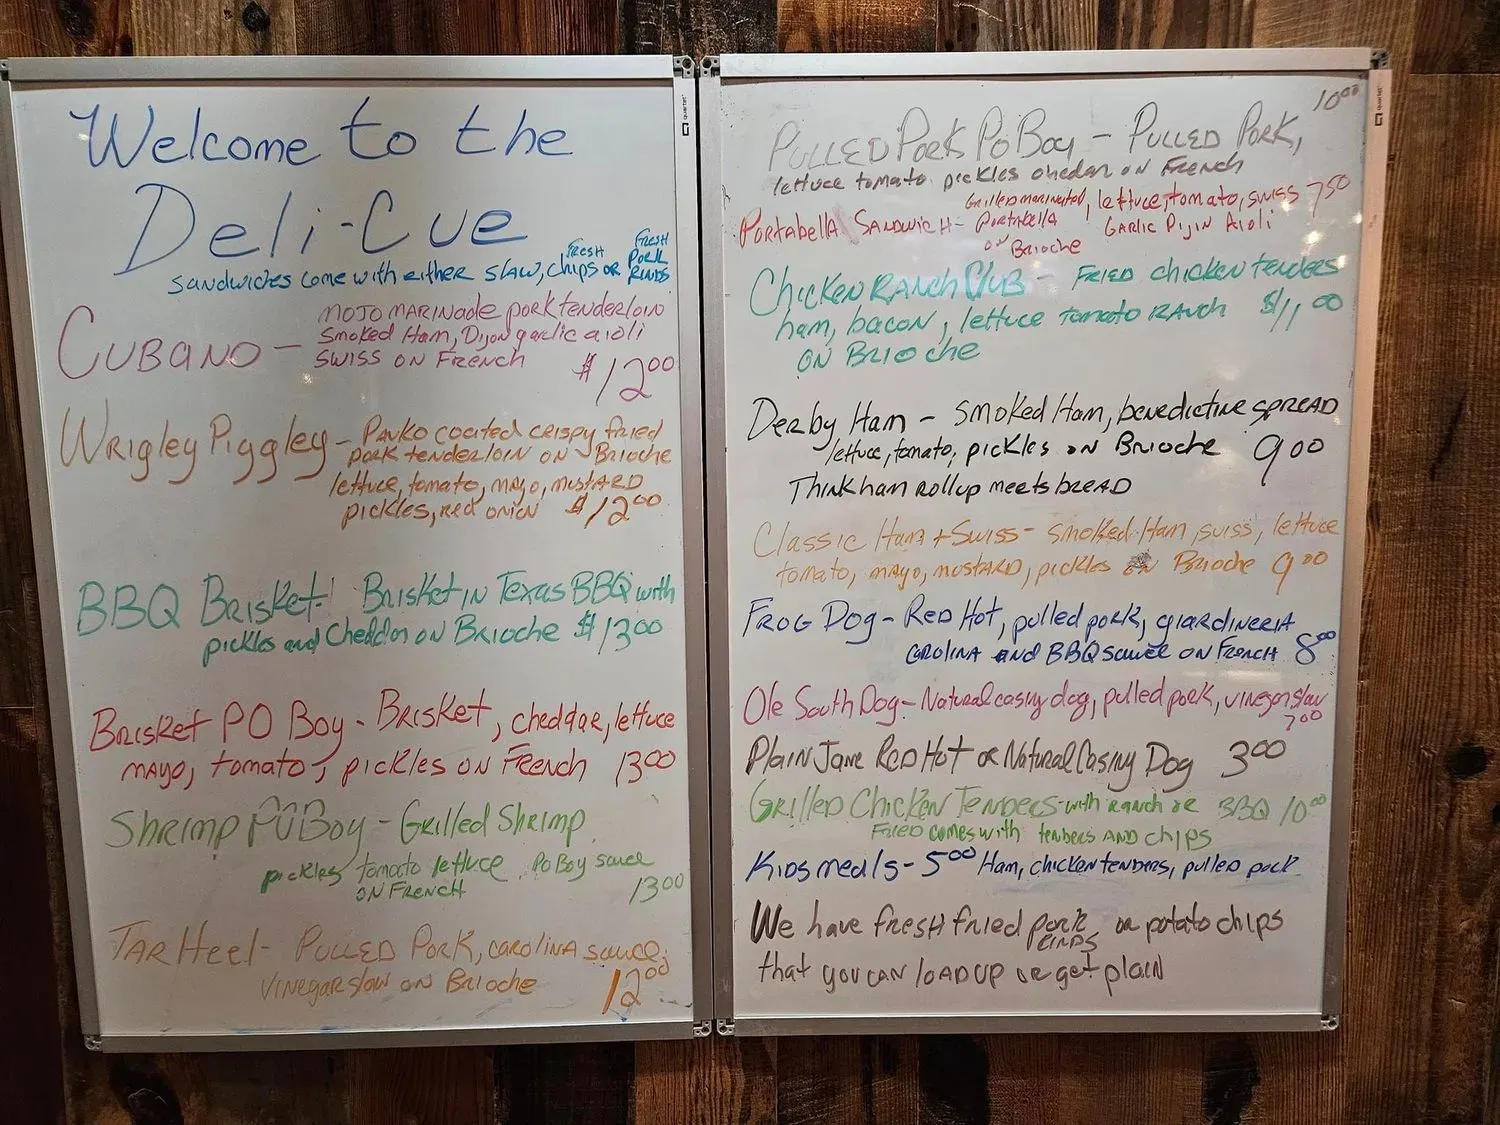 Welcome to the
Deli-Cue
Sandwiches come with either slaw, fresh chips or fresh pork rinds
Cubano - Mojo marinade pork tenderloin
smoked Ham, Dijon garlic aioli
swiss on French $12.00
Wrigley Piggley - Panko coated crispy fried
pork tenderloin on Brioche
lettuce, tomato, mayo, mustard
pickles, red onion $12.00
BBQ Brisket! Brisket in Texas BBQ with
pickles and Cheddar on Brioche $13.00
Brisket PO Boy - Brisket, cheddar, lettuce
mayo, tomato, pickles on French 13.00
Shrimp PO Boy - Grilled Shrimp
pickles tomato lettuce PO Boy sauce
on French 13.00
Tar Heel - Pulled Pork, carolina sauce,
vinegar slaw on Brioche 12.00
quartet
10.00
Pulled Pork Po Boy - Pulled Pork,
lettuce tomato pickles chedar on French
Portabella Sandwich - Grilled marinated Portabella on Brioche, lettuce, tomato, swiss 7.50
Garlic Dijin Aioli
Chicken Ranch Club - Fried chicken tenders
ham, bacon, lettuce tomato ranch $11.00
on Brioche
Derby Ham - smoked Ham, benedictine spread
lettuce, tomato, pickles on Brioche 9.00
Think ham rollup meets bread
Classic Ham + Swiss - smoked Ham, swiss, lettuce
tomato, mayo, mustard, pickles on Brioche 9.00
Frog Dog - Red Hot, pulled pork, giardineria
carolina and BBQ sauce on French 8.00
Ole South Dog - Natural casing dog, pulled pork, vinegar slaw
7.00
Plain Jane Red Hot or Natural Casing Dog 3.00
Grilled Chicken Tenders - with ranch or BBQ 10.00
Fried comes with tenders and chips
Kids meals - 5.00 Ham, chicken tenders, pulled pork
We have fresh fried pork rinds or potato chips
that you can load up or get plain
quartet